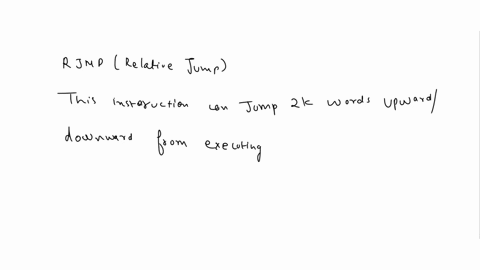 RJMP (Relative Jump)
This instruction can Jump 2k words upward/
downward from executing